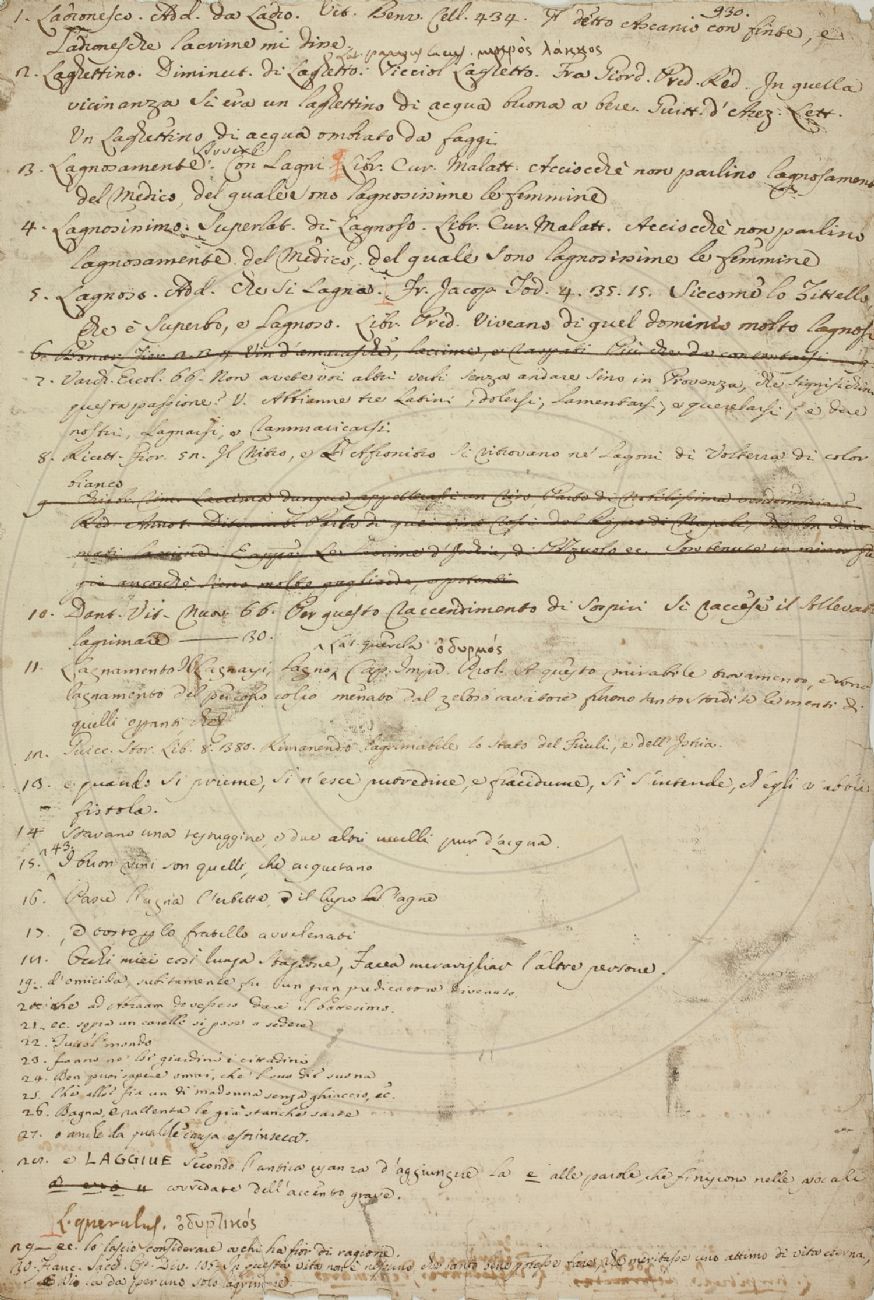 1. Ladronesco. Add. da Ladro. Vit. Benv. Cell. 434. E detto Ascanio con finte, e
930.
Ladronesche lacrime mi dine
Lat. parvus lacus. μικρὸς λάκκος
2. Laghettino. Diminut. di Laghetto. Picciol Laghetto. Fra Giord. Pred. Red. In quella
vicinanza si era un laghettino di acqua buona a bere. Guitt. d'Arez. Lett.
Un Laghettino di acqua ombrato da faggi.
13. Lagnosamente. Con Lagni. Libr. Cur. Malatt. Acciocchè non parlino lagnosamente
del Medico, del quale sono lagnosissime le femmine
4. Lagnosissimo. Superlat. di Lagnoso. Libr. Cur. Malatt. Acciocchè non parlino
lagnosamente del Medico, del quale sono lagnosissime le femmine
5. Lagnoso. Add. Che si Lagna. Fr. Jacop. Tod. 4. 35. 15. Siccome lo Zittello
che è superbo, e Lagnoso. Libr. Pred. Viveano di quel dominio molto lagnosi
7. Varch. Ercol. 66. Non avete voi altri verbi senza andare sino in Provenza, che significhino
questa passione? V. Abbianne tre Latini, dolersi, lamentarsi, e querelarsi, e due
nostri, Lagnarsi, e Rammaricarsi.
8. Ricett. Fior. 52. Il Nitro, e Afronitro si ritrovano ne' Lagoni di Volterra di color
bianco
10. Dant. Vit. Nuov. 66. Per questo raccendimento di sospiri si raccese il sollevato
lagrimare 30.
Lat. querela ὀδυρμός
11. Lagnamento. Il Lagnarsi, lagno. Capp. Impr. Prol. A questo mirabile trovamento, e
lagnamento del percosso colpo menato dal zeloso cavatore furono tanto stordite le menti di
quelli opranti
12. Guicc. Stor. Lib. 8. 380. Rimanendo lagrimabile lo stato del Friuli, e dell'Istria.
13. e quando si prieme, si n'esce putredine, e fracidume, si s'intende, ch'egli v'abbia
fistola.
14 Stavano una testuggine, e due altri uccelli pur d'acqua.
43.
15. I buon vini son quelli, che acquetano
16. Pasce l'agna l'erbette, e il lupo l'agne
17. , e tosto lo fratello avvelenati
18. Occhi miei così lunga stagione, Facea maravigliar l'altre persone.
19. d'omicida, subitamente fu un gran predicatore divenuto
20. che ad Abraam dovessero dare il battesimo.
21. ec. sopra un carello si pose a sedere
22. Tutto 'l mondo
23. fanno ne' lor giardini i cittadini
24. Ben puoi sapere omai, che 'l suo dir suona
25. Chi allor fia un di madonna senza ghiaccio, ec.
26. Bagna, e rallenta le già stanche sarte
27. o anche da qualche causa estrinseca.
28. e LAGGIUE secondo l'antica usanza d'aggiungere la e alle parole, che finiscono nelle vocali
corredate dell'accento grave.
L. querulus. ὀδυρτικός
29. ec. lo lascio considerare a chi ha fior di ragione.
30. Franc. Sacch. Op. Div. 105. In questa vita non è nessuno che tanto bene potesse fare, che meritasse uno attimo di vita eterna,
e Dio la dà per uno solo lagrimare